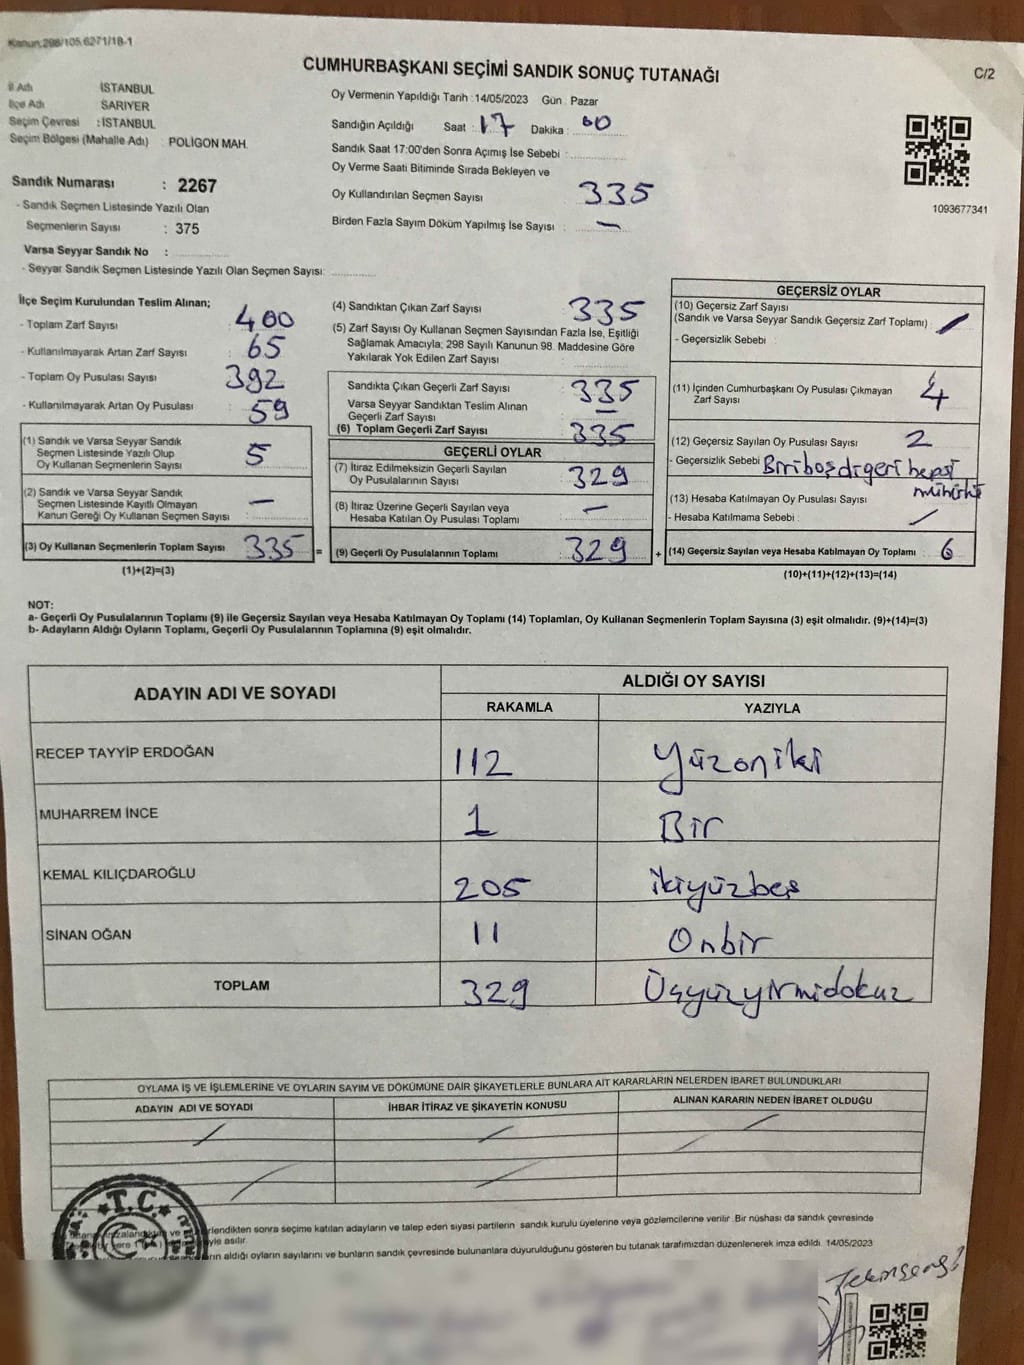 Kanun.298/105.6271/18-1
C/2
CUMHURBAŞKANI SEÇİMİ SANDIK SONUÇ TUTANAĞI
İl Adı İSTANBUL
İlçe Adı SARIYER
Seçim Çevresi : İSTANBUL
Seçim Bölgesi (Mahalle Adı) POLİGON MAH.
Sandık Numarası : 2267
- Sandık Seçmen Listesinde Yazılı Olan
Seçmenlerin Sayısı : 375
Varsa Seyyar Sandık No :
- Seyyar Sandık Seçmen Listesinde Yazılı Olan Seçmen Sayısı:
Oy Vermenin Yapıldığı Tarih : 14/05/2023 Gün : Pazar
Sandığın Açıldığı Saat : 17 Dakika : 00
Sandık Saat 17:00'den Sonra Açımış İse Sebebi :
Oy Verme Saati Bitiminde Sırada Bekleyen ve
Oy Kullandırılan Seçmen Sayısı 335
Birden Fazla Sayım Döküm Yapılmış İse Sayısı : —
1093677341
İlçe Seçim Kurulundan Teslim Alınan;
- Toplam Zarf Sayısı : 400
- Kullanılmayarak Artan Zarf Sayısı : 65
- Toplam Oy Pusulası Sayısı : 392
- Kullanılmayarak Artan Oy Pusulası : 59
(1) Sandık ve Varsa Seyyar Sandık
Seçmen Listesinde Yazılı Olup
Oy Kullanan Seçmenlerin Sayısı : 5
(2) Sandık ve Varsa Seyyar Sandık
Seçmen Listesinde Kayıtlı Olmayan
Kanun Gereği Oy Kullanan Seçmen Sayısı : —
(3) Oy Kullanan Seçmenlerin Toplam Sayısı : 335 =
(1)+(2)=(3)
(4) Sandıktan Çıkan Zarf Sayısı : 335
(5) Zarf Sayısı Oy Kullanan Seçmen Sayısından Fazla İse, Eşitliği
Sağlamak Amacıyla; 298 Sayılı Kanunun 98. Maddesine Göre
Yakılarak Yok Edilen Zarf Sayısı :
Sandıkta Çıkan Geçerli Zarf Sayısı : 335
Varsa Seyyar Sandıktan Teslim Alınan
Geçerli Zarf Sayısı : —
(6) Toplam Geçerli Zarf Sayısı : 335
GEÇERLİ OYLAR
(7) İtiraz Edilmeksizin Geçerli Sayılan
Oy Pusulalarının Sayısı : 329
(8) İtiraz Üzerine Geçerli Sayılan veya
Hesaba Katılan Oy Pusulası Toplamı : —
(9) Geçerli Oy Pusulalarının Toplamı : 329 +
GEÇERSİZ OYLAR
(10) Geçersiz Zarf Sayısı
(Sandık ve Varsa Seyyar Sandık Geçersiz Zarf Toplamı) :
- Geçersizlik Sebebi :
(11) İçinden Cumhurbaşkanı Oy Pusulası Çıkmayan
Zarf Sayısı : 4
(12) Geçersiz Sayılan Oy Pusulası Sayısı : 2
- Geçersizlik Sebebi Biri boş diğeri hepsi
mühürlü
(13) Hesaba Katılmayan Oy Pusulası Sayısı :
- Hesaba Katılmama Sebebi :
(14) Geçersiz Sayılan veya Hesaba Katılmayan Oy Toplamı : 6
(10)+(11)+(12)+(13)=(14)
NOT:
a- Geçerli Oy Pusulalarının Toplamı (9) ile Geçersiz Sayılan veya Hesaba Katılmayan Oy Toplamı (14) Toplamları, Oy Kullanan Seçmenlerin Toplam Sayısına (3) eşit olmalıdır. (9)+(14)=(3)
b- Adayların Aldığı Oyların Toplamı, Geçerli Oy Pusulalarının Toplamına (9) eşit olmalıdır.
ADAYIN ADI VE SOYADI ALDIĞI OY SAYISI
RAKAMLA YAZIYLA
RECEP TAYYİP ERDOĞAN 112 Yüzoniki
MUHARREM İNCE 1 Bir
KEMAL KILIÇDAROĞLU 205 ikiyüzbeş
SİNAN OĞAN 11 Onbir
TOPLAM 329 Üçyüzyirmidokuz
OYLAMA İŞ VE İŞLEMLERİNE VE OYLARIN SAYIM VE DÖKÜMÜNE DAİR ŞİKAYETLERLE BUNLARA AİT KARARLARIN NELERDEN İBARET BULUNDUKLARI
ADAYIN ADI VE SOYADI İHBAR İTİRAZ VE ŞİKAYETİN KONUSU ALINAN KARARIN NEDEN İBARET OLDUĞU
T.C.
sonra seçime katılan adayların ve talep eden siyasi partilerin sandık kurulu üyelerine veya gözlemcilerine verilir. Bir nüshası da sandık çevresinde
asılır.
aldığı oyların sayılarını ve bunların sandık çevresinde bulunanlara duyurulduğunu gösteren bu tutanak tarafımızdan düzenlenerek imza edildi. 14/05/2023